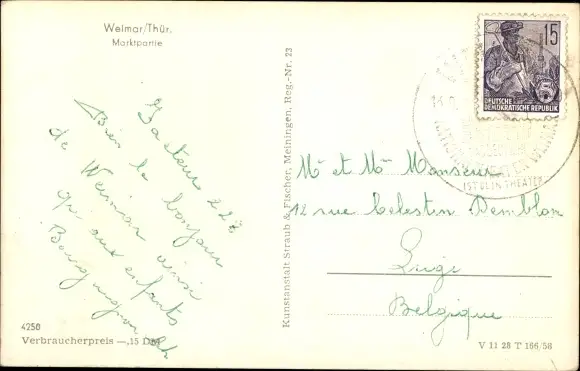 Weimar/Thür.
Marktpartie
Bien le bonjour
de Weimar ainsi
qu'aux enfants
4250
Verbraucherpreis —,15 DM
Kunstanstalt Straub & Fischer, Meiningen, Reg.-Nr. 23
15
DEUTSCHE
DEMOKRATISCHE REPUBLIK
IST DEIN THEATER
Mr et Me Monseur
12 rue Celestin Demblon
Liège
Belgique
V 11 28 T 166/58